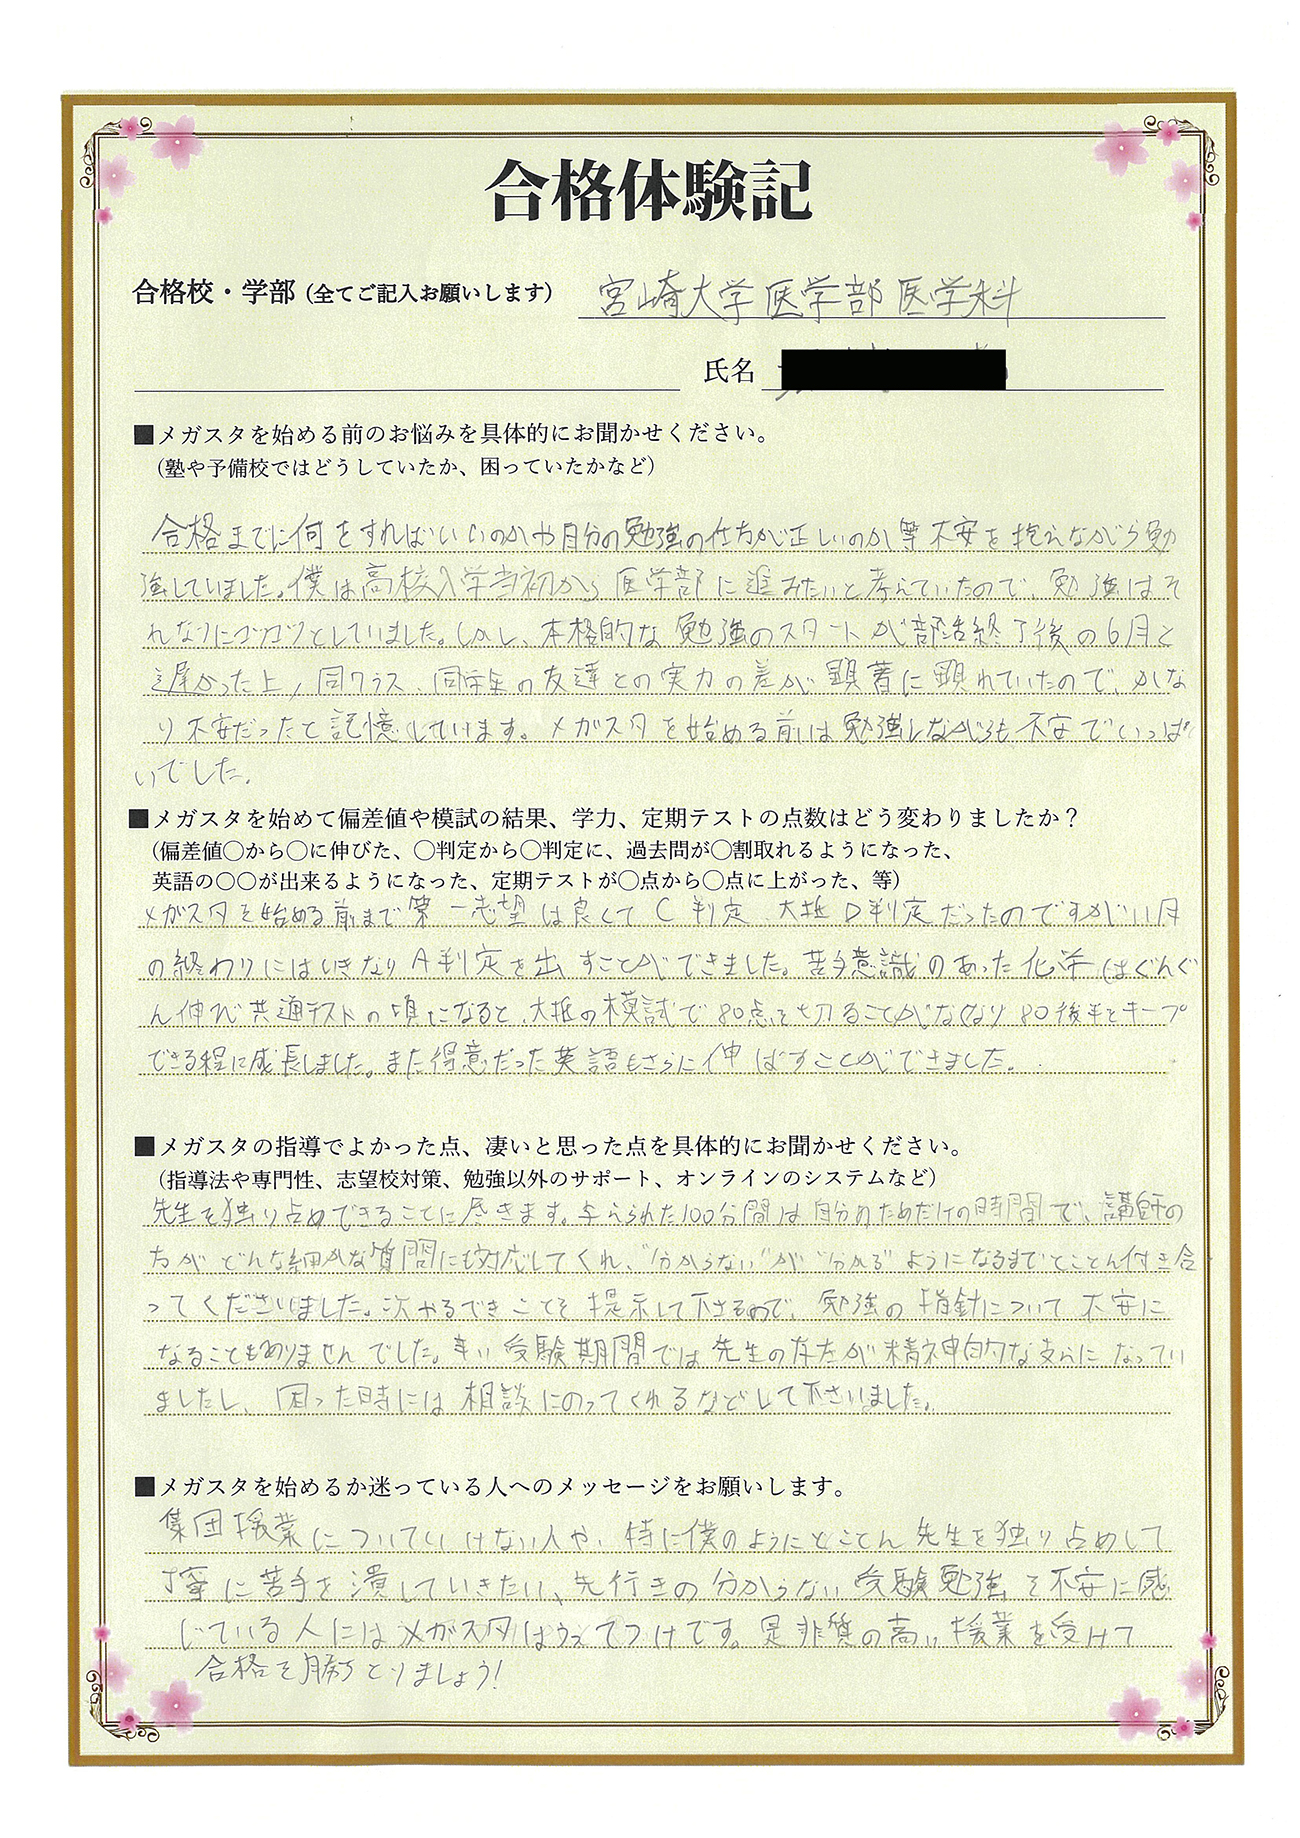 合格体験記
合格校・学部（全てご記入お願いします） 宮崎大学医学部医学科
氏名
■メガスタを始める前のお悩みを具体的にお聞かせください。
（塾や予備校ではどうしていたか、困っていたかなど）
合格までに何をすればいいのかや自分の勉強の仕方が正しいのか等不安を抱えながら勉
強していました。僕は高校入学当初から医学部に進みたいと考えていたので、勉強はそ
れなりにコツコツとしていました。しかし、本格的な勉強のスタートが部活終了後の6月と
遅かった上、同クラス、同学年の友達との実力の差が顕著に現れていたので、かな
り不安だったと記憶しています。メガスタを始める前は勉強しながらも不安でいっぱ
いでした。
■メガスタを始めて偏差値や模試の結果、学力、定期テストの点数はどう変わりましたか？
（偏差値〇から〇に伸びた、〇判定から〇判定に、過去問が〇割取れるようになった、
英語の〇〇が出来るようになった、定期テストが〇点から〇点に上がった、等）
メガスタを始める前まで第一志望は良くてC判定、大抵D判定だったのですが11月
の終わりにはいきなりA判定を出すことができました。苦手意識のあった化学はぐんぐ
ん伸び共通テストの頃になると、大抵の模試で80点を切ることがなくなり80後半をキープ
できる程に成長しました。また得意だった英語もさらに伸ばすことができました。
■メガスタの指導でよかった点、凄いと思った点を具体的にお聞かせください。
（指導法や専門性、志望校対策、勉強以外のサポート、オンラインのシステムなど）
先生を独り占めできることに尽きます。与えられた100分間は自分のためだけの時間で、講師の
方がどんな細かな質問にも対応してくれ、“分からない”が“分かる”ようになるまでとことん付き合
ってくださいました。次やるできことを提示して下さるので、勉強の指針について不安に
なることもありませんでした。辛い受験期間では先生の存在が精神的な支えになってい
ましたし、困った時には相談にのってくれるなどして下さいました。
■メガスタを始めるか迷っている人へのメッセージをお願いします。
集団授業についていけない人や、特に僕のようにとことん先生を独り占めして
丁寧に苦手を潰していきたい、先行きの分からない受験勉強を不安に感
じている人にはメガスタはうってつけです。是非質の高い授業を受けて
合格を勝ちとりましょう！